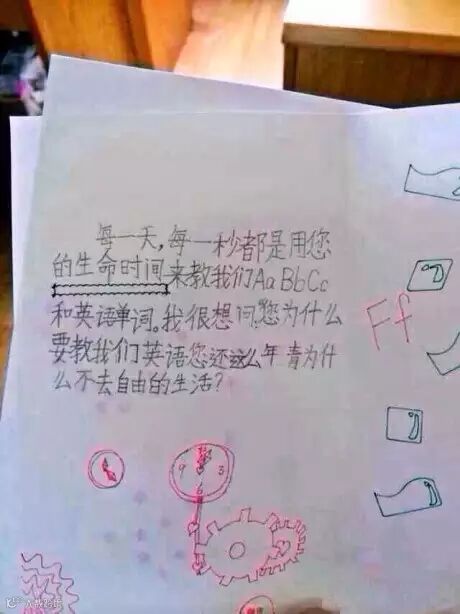 每一天,每一秒都是用您
的生命时间来教我们Aa Bb Cc
和英语单词。我很想问,您为什么
要教我们英语您还这么年青为什
么不去自由的生活?
Ff
9 3
6